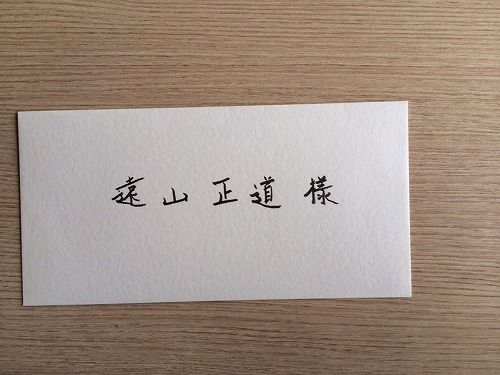 遠山正道様